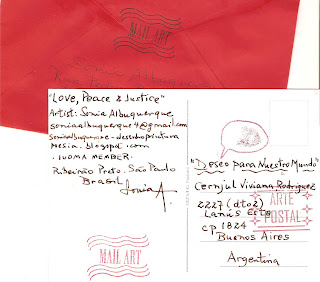 MAIL ART
"Love, Peace & Justice"
Artist: Sonia Albuquerque
soniaalbuquerque4@gmail.com
poesia.blogspot.com
. IUOMA MEMBER.
Ribeirão Preto. São Paulo
Brasil
Sonia A.
MAIL ART
"Deseo para Nuestro Mundo"
Cernjul Viviana Rodriguez
2227 (dto2)
Lanús Este
CP 1824
Buenos Aires
Argentina
ARTE
POSTAL